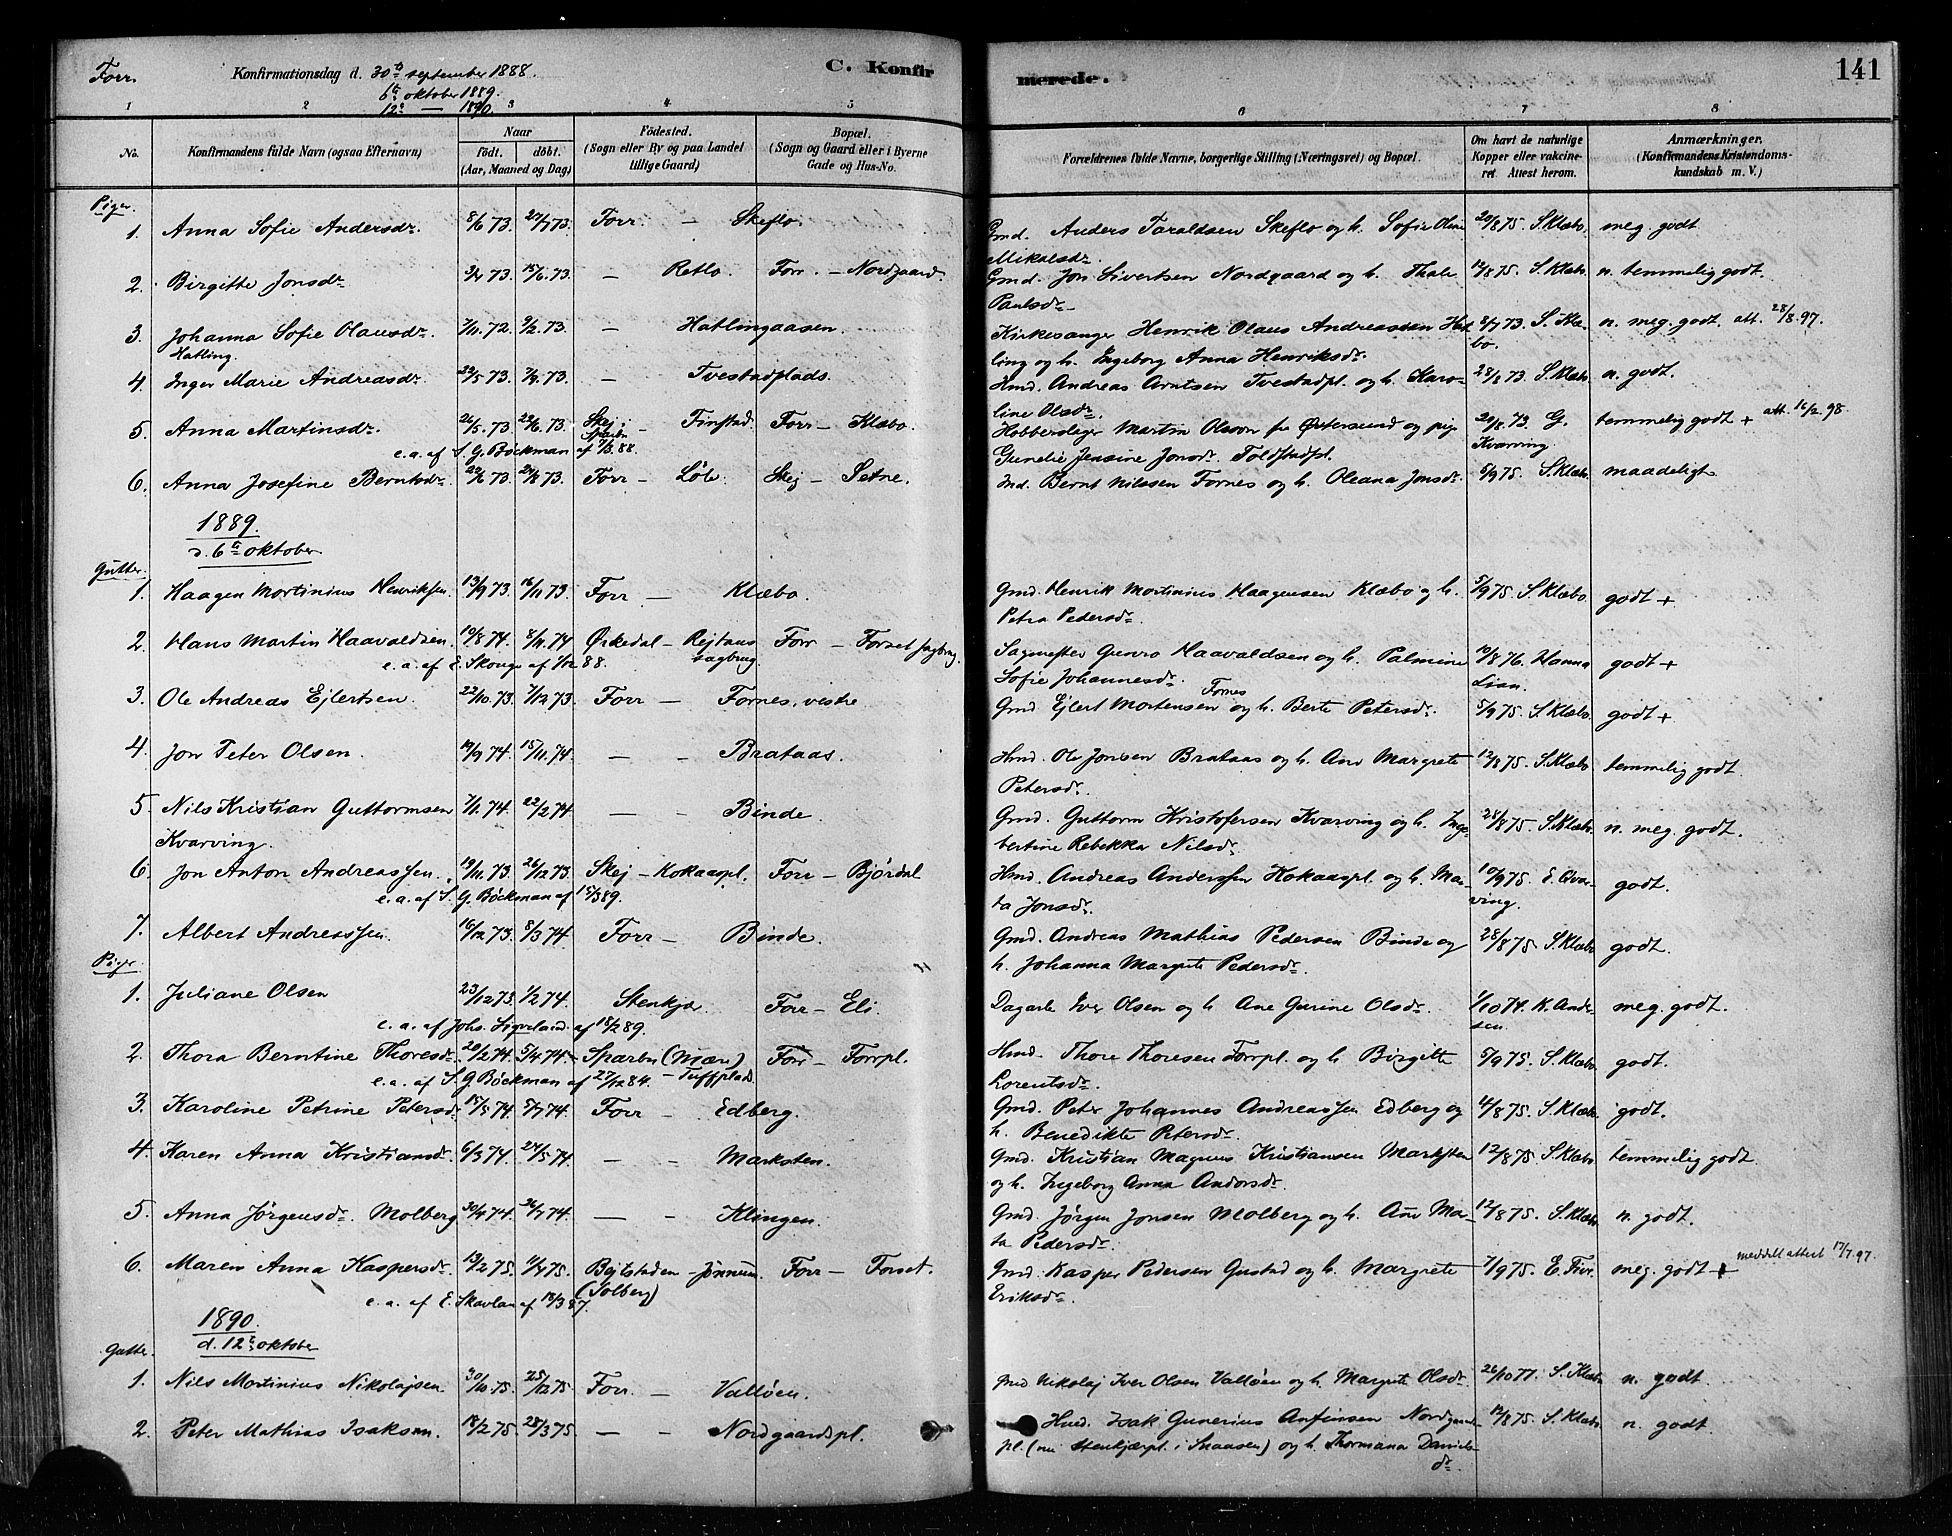 Forr.
Konfirmationsdag d. 30te september 1888.
6te oktober 1889.
12te — 1890.
C. Konfirmerede.
141
1 2 3 4 5 6 7 8
No.
Konfirmandens fulde Navn (ogsaa Efternavn)
Naar
födt. döbt.
(Aar, Maaned og Dag)
Födested.
(Sogn eller By og paa Landet tillige Gaard)
Bopæl.
(Sogn og Gaard eller i Byerne Gade og Hus-No.
Forældrenes fulde Navne, borgerlige Stilling (Næringsvei) og Bopæl.
Om havt de naturlige Kopper eller vakcineret. Attest herom.
Anmærkninger.
(Konfirmandens Kristendomskundskab m. V.)
Piger.
1. Anna Sofie Andersdr. 8/6 73. 27/7 73. Forr — Skeflo. Gmd. Anders Taraldsen Skeflo og h. Sofie Oline 20/8 75. S. Klæbo. meg. godt
Mikalsdr.
2. Birgitte Jonsdr. 73. 15/6. 73. — Retlo. Forr. — Nordgaard. Gmd. Jon Sivertsen Nordgaard og h. Thale 12/8 75. S. Klæbo. n. temmelig godt.
Paulsdr.
3. Johanna Sofie Olausdr. 7/11. 72. 9/2. 73. — Hatlingaasen. Kirkesanger Henrik Olaus Andreassen Hat- 8/7 73. S. Klæ- n. meg. godt. att. 28/8. 97.
Hatling. ling og h. Ingeborg Anna Henriksdr. bo.
4. Inger Marie Andreasdr. 22/5 73. 7/9. 73. — Tvestadplads. Hmd. Andreas Arntsen Tvestadpl. og h. Karo- 28/8 73. S. Klæbo. n. godt.
line Olsdr.
5. Anna Martinsdr. 26/5. 73. 22/6. 73. Skej; Sparbu — Finstad. Forr — Klæbo. Martin Olsson fra Østersund og pige 20/8. 73. G. Kvarving. temmelig godt + att. 16/2. 98.
e. a. af S. G. Bøckman af 7/3. 88. Gunelie Jensine Jonsdr. Folstadpl.
6. Anna Josefine Berntsdr. 73. 73. Forr — Løle. Skej — Setne. Ind. Bernt Nilssen Fornes og h. Oleana Jonsdr. 5/9 75. S. Klæbo. maadeligt
1889.
d. 6te oktober
Gutter.
1. Haagen Mortinius Henriksen. 13/9 73. 16/11 73. Forr — Klæbo. Gmd. Henrik Mortinius Haagensen Klæbo og h. 5/9 75. S. Klæbo godt +
Petra Pedersdr.
2. Hans Martin Haavaldsen 10/8 74. 8/11. 74 Ørkedal — Rejtans sagbrug. Forr — Forset sagbrug. Sagmester Gunro Haavaldsen og h. Palmine 10/8 76. Hanna Lian. godt +
e. a. af E. Skouge af 1/12 88. Sofie Johannesdr.
3. Ole Andreas Ejlertsen. 22/10. 73. 7/12 73. Forr — Fornes, vestre Gmd Ejlert Mortensen Fornes og h. Berte Petersdr. 5/9 75. S. Klæbo. godt +
4. Jon Peter Olsen. 19/9 74. 15/11. 74. — — Brataas. Hmd. Ole Jonsen Brataas og h. Ane Margrete 12/8 75. S. Klæbo temmelig godt.
Petersdr.
5. Nils Kristian Guttormsen 7/1. 74. 22/2 74. — — Binde. Gmd. Guttorm Kristofersen Kvarving og h. Inge- 28/8 75. S. Klæbo. n. meg. godt.
Kvarving. bertine Rebekka Nilsdr.
6. Jon Anton Andreassen. 19/11. 73. 26/12 73. Skej — Kokaaspl. Forr — Bjørdal Hmd. Andreas Anderssen Kokaaspl. og h. Mar- 10/9 75. E. Qvarving. godt.
e. a. af S. G. Bøckman af 15/3 89. ta Jonsdr.
7. Albert Andreassen. 16/12 73. 8/3 74. Forr — Binde. Gmd. Andreas Mathias Pedersen Binde og 28/8 75. S. Klæbo godt.
h. Johanna Margrete Pedersdr.
Piger.
1. Juliane Olsen 23/12 73. 1/2 74. Stenkjær Forr — Eli. Dagarb. Iver Olsen og h Ane Gurine Olsdr. 1/10 74. K. Andersen. meg. godt.
e. a. af Johs. Sigveland af 18/2 89.
2. Thora Berntine Thoresdr. 20/2 74. 5/4 74. Sparbu (Mære) — Tuffplads Forr — Forrpl. Hmd. Thore Thoresen Forrpl. og h Birgitte 5/9 75. S. Klæbo godt.
e. a. af S. G. Bøckman af 27/12 84. Lorentsdr.
3. Karoline Petrine Petersdr. 15/5 74. 5/7 74. Forr — Edberg. Gmd. Peter Johannes Andreassen Edberg og 14/8 75. S. Klæbo godt.
h. Benedikte Petersdr.
4. Karen Anna Kristiansdr. 6/3 74. 24/5 74. — — Marksten. Gmd. Kristian Magnus Kristiansen Marksten 12/8 75. S. Klæbo temmelig godt.
og h. Ingeborg Anna Andorsdr.
5. Anna Jørgensdr. Molberg 30/4 74. 26/7 74. — — Klingen. Gmd. Jørgen Jonsen Molberg og h. Ane Mar- 12/8 75. S. Klæbo. n. godt.
ta Pedersdr.
6. Maren Anna Kaspersdr. 13/2 75. 11/4 75. Bejtstaden — Jønnum. (Solberg) Forr — Forset. Gmd. Kasper Pedersen Gustad og h. Margrete 7/9 75. E. meg. godt + meddelt attest 17/7. 97.
e. a. af E. Skavlan af 18/3 87. Eriksdr.
1890.
d. 12te oktober
Gutter.
1. Nils Mortinius Nikolajsen. 30/10 75. 25/12 75. Forr. — Valløen. Gmd Nikolaj Iver Olsen Valløen og h. Margrete Olsdr. 26/10 77. S. Klæbo n. godt.
2. Peter Mathias Isaksen. 18/2 75. 28/3 75 — — Nordgaardspl. Hmd. Isak Gunerius Anfinsen Nordgaards- 12/8 75. S. Klæbo. n. godt.
pl. (nu Stenkjærpl. i Snaasen) og h. Thormana Daniels-
dr.